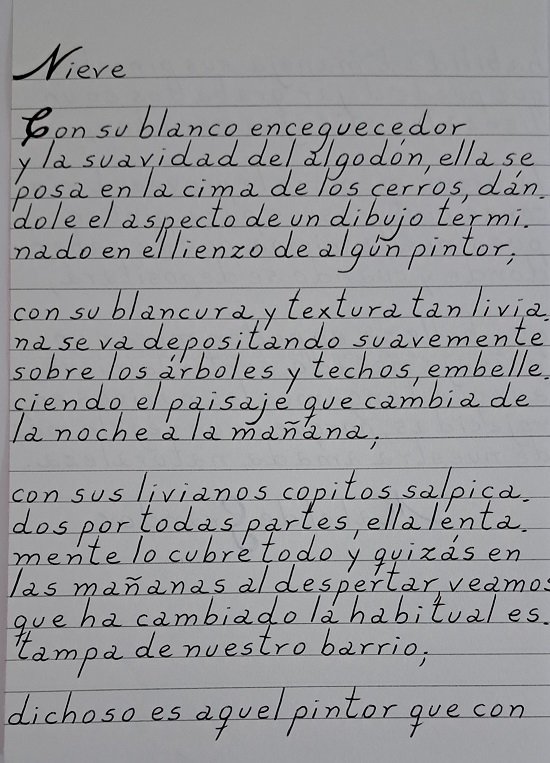 Nieve
Con su blanco enceguecedor
y la suavidad del algodón, ella se
posa en la cima de los cerros, dán-
dole el aspecto de un dibujo termi-
nado en el lienzo de algún pintor;
con su blancura y textura tan livia-
na se va depositando suavemente
sobre los árboles y techos, embelle-
ciendo el paisaje que cambia de
la noche a la mañana;
con sus livianos copitos salpica-
dos por todas partes, ella lenta-
mente lo cubre todo y quizás en
las mañanas al despertar, veamos
que ha cambiado la habitual es-
tampa de nuestro barrio;
dichoso es aquel pintor que con